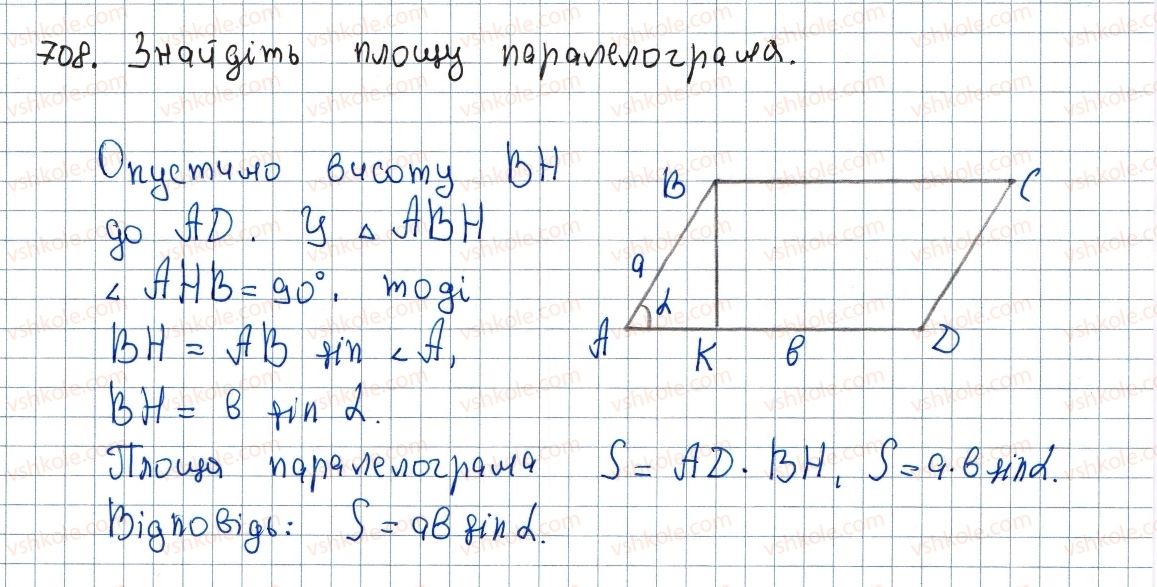 708. Знайдіть площу паралелограма.
Опустимо висоту BH
до AD. У △ ABH
∠ AHB = 90°. тоді
BH = AB sin ∠ A,
BH = в sin α.
Площа паралелограма S = AD · BH, S = a · в sin α.
Відповідь: S = aв sin α.
B C
a α
A K в D
vshkole.com